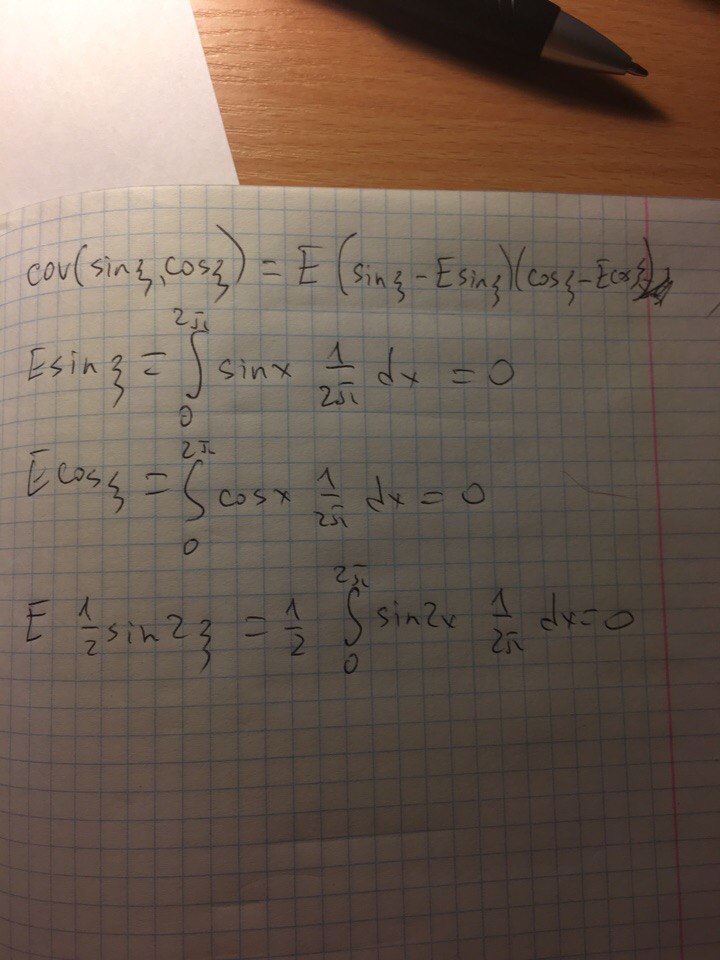 cov(sin ξ, cos ξ) = E (sin ξ - E sin ξ)(cos ξ - E cos ξ)
E sin ξ = ∫₀^{2π} sin x 1/2π dx = 0
E cos ξ = ∫₀^{2π} cos x 1/2π dx = 0
E 1/2 sin 2ξ = 1/2 ∫₀^{2π} sin 2x 1/2π dx = 0